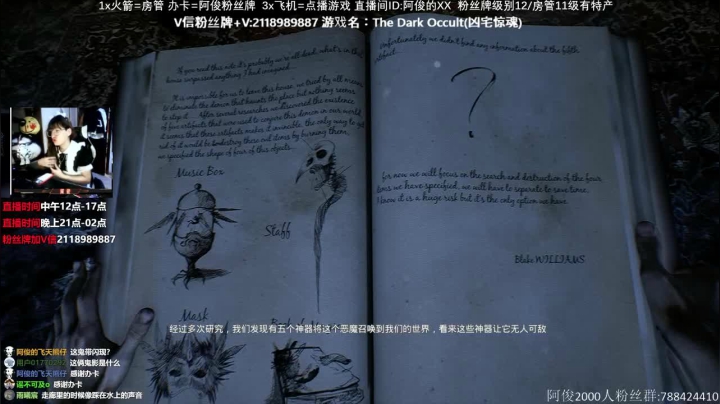 1x火箭=房管 办卡=阿俊粉丝牌 3x飞机=点播游戏 直播间ID:阿俊的XX 粉丝牌级别12/房管11级有特产
V信粉丝牌+V:2118989887 游戏名：The Dark Occult(凶宅惊魂)
If you read this note it's probably we're all dead, what's in this
house surpassed anything I had imagined...
It is impossible for us to leave this house, we tried by all means
to eliminate the demon that haunts the place but nothing seems
to stop it. After several researches we discovered the existence
of five artifacts that were used to conjure this demon in our world,
it seems that these artifacts makes it invincible, the only way to get
rid of it would be destroy these evil items by burning them,
we specified the shape of four of this objects...
Music Box
Staff
Mask
Unfortunately we didn't find any information about the fifth
object.
?
for now we will focus on the search and destruction of the four
items we have specified, we will have to separate to save time,
I know it is a huge risk but it's the only option we have.
Blake WILLIAMS
直播时间中午12点-17点
直播时间晚上21点-02点
粉丝牌加V信2118989887
经过多次研究，我们发现有五个神器将这个恶魔召唤到我们的世界，看来这些神器让它无人可敌
这鬼带闪现？
这俩鬼影是什么
阿俊的飞天拐仔 感谢办卡
谣不可及o 感谢办卡
雨曦宸 走廊里的时候像踩在水上的声音
阿俊2000人粉丝群:788424410